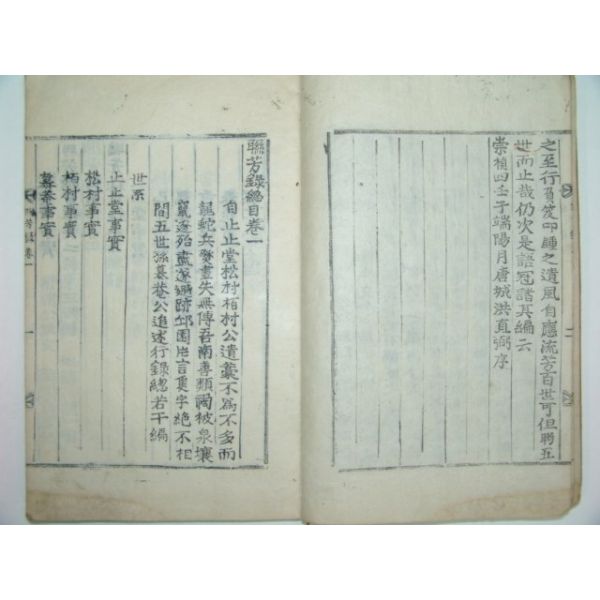 之至行負笈叩腫之遺風自應流芳百世可但聯五
世而止哉仍次是語冠諸其編云
崇禎四壬子端陽月唐城洪直弼序
聯芳錄總目卷一
自止止堂松村栢村公遺藁不爲不多而
龍蛇兵燹盡失無傳吾南善類禍被泉壤
竄逐殆盡遂遯跡邱園片言隻字絶不相
間五世孫慕巷公追述行錄總若干編
世系
止止堂事實
松村事實
栢村事實
慕巷事實
芳錄 卷一